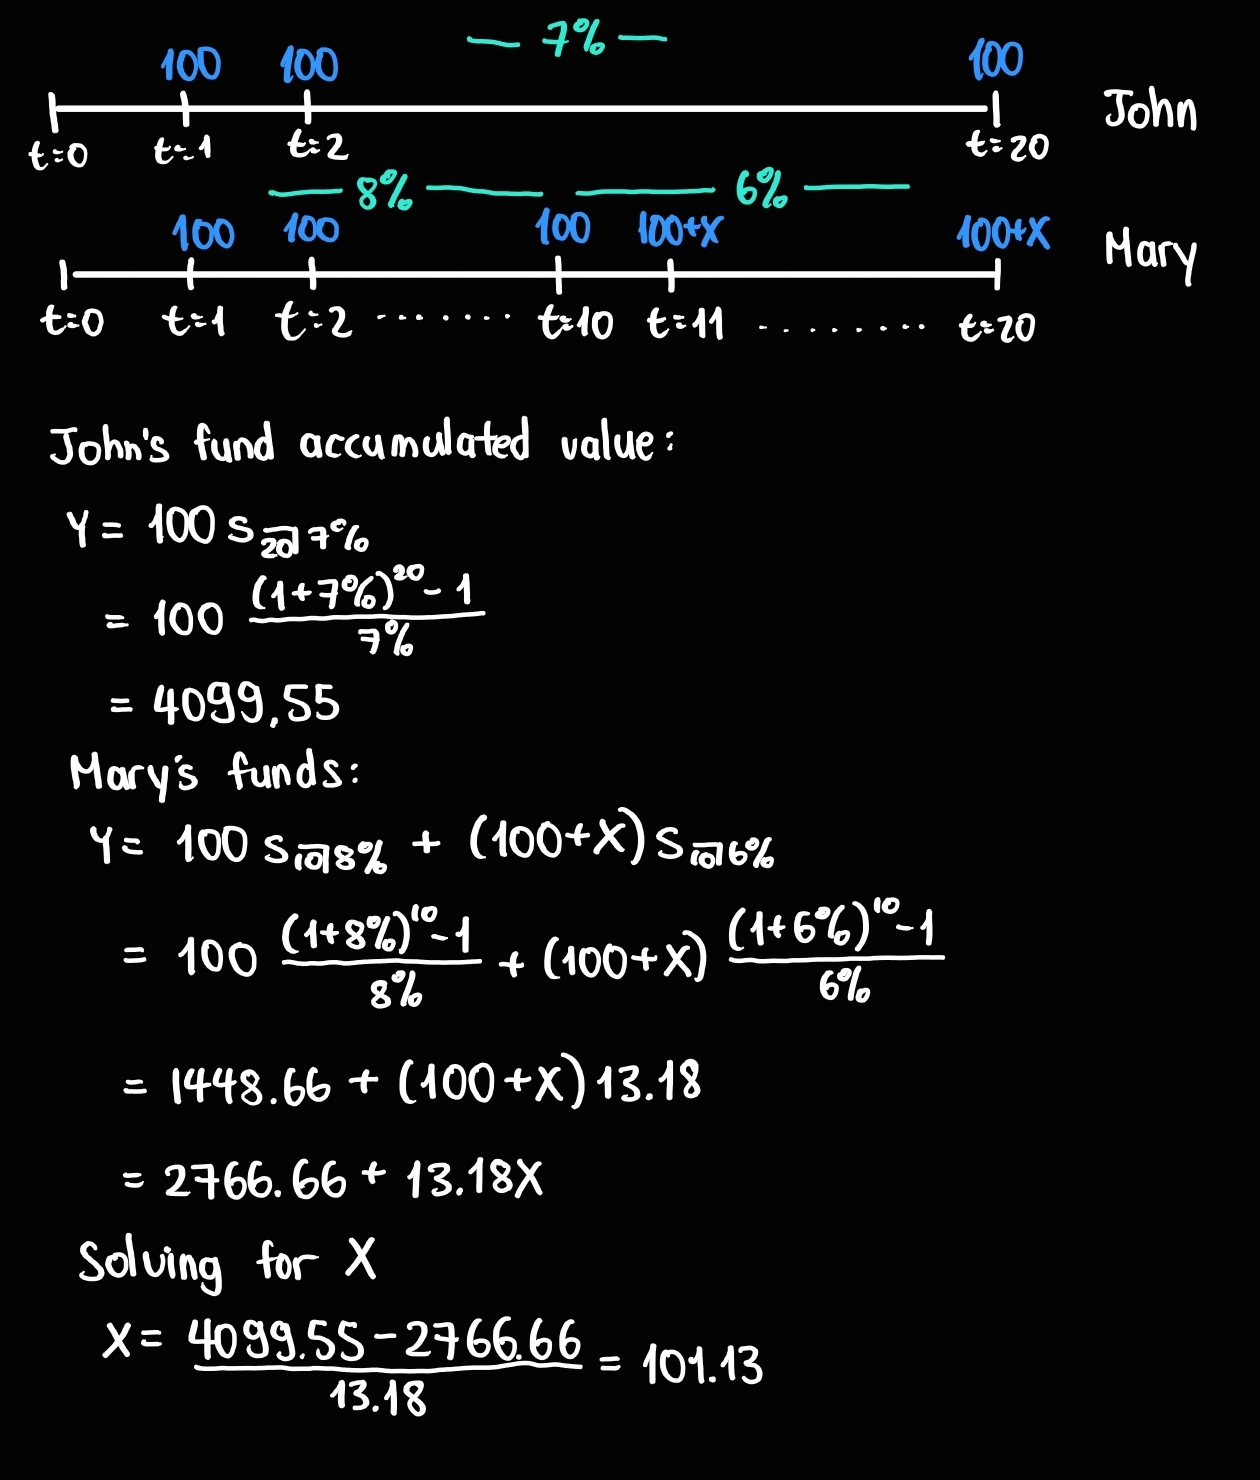 — 7% —
100 100 100
John
t=0 t=1 t=2 t=20
— 8% — — 6% —
100 100 100 100+X 100+X
Mary
t=0 t=1 t=2 ........ t=10 t=11 ........ t=20
John's fund accumulated value:
Y = 100 s_{20⌉7%}
= 100 ((1+7%)^20 - 1)/(7%)
= 4099,55
Mary's funds:
Y = 100 s_{10⌉8%} + (100+X) s_{10⌉6%}
= 100 ((1+8%)^10 - 1)/(8%) + (100+X) ((1+6%)^10 - 1)/(6%)
= 1448.66 + (100+X) 13.18
= 2766.66 + 13.18X
Solving for X
X = (4099.55 - 2766.66)/(13.18) = 101.13